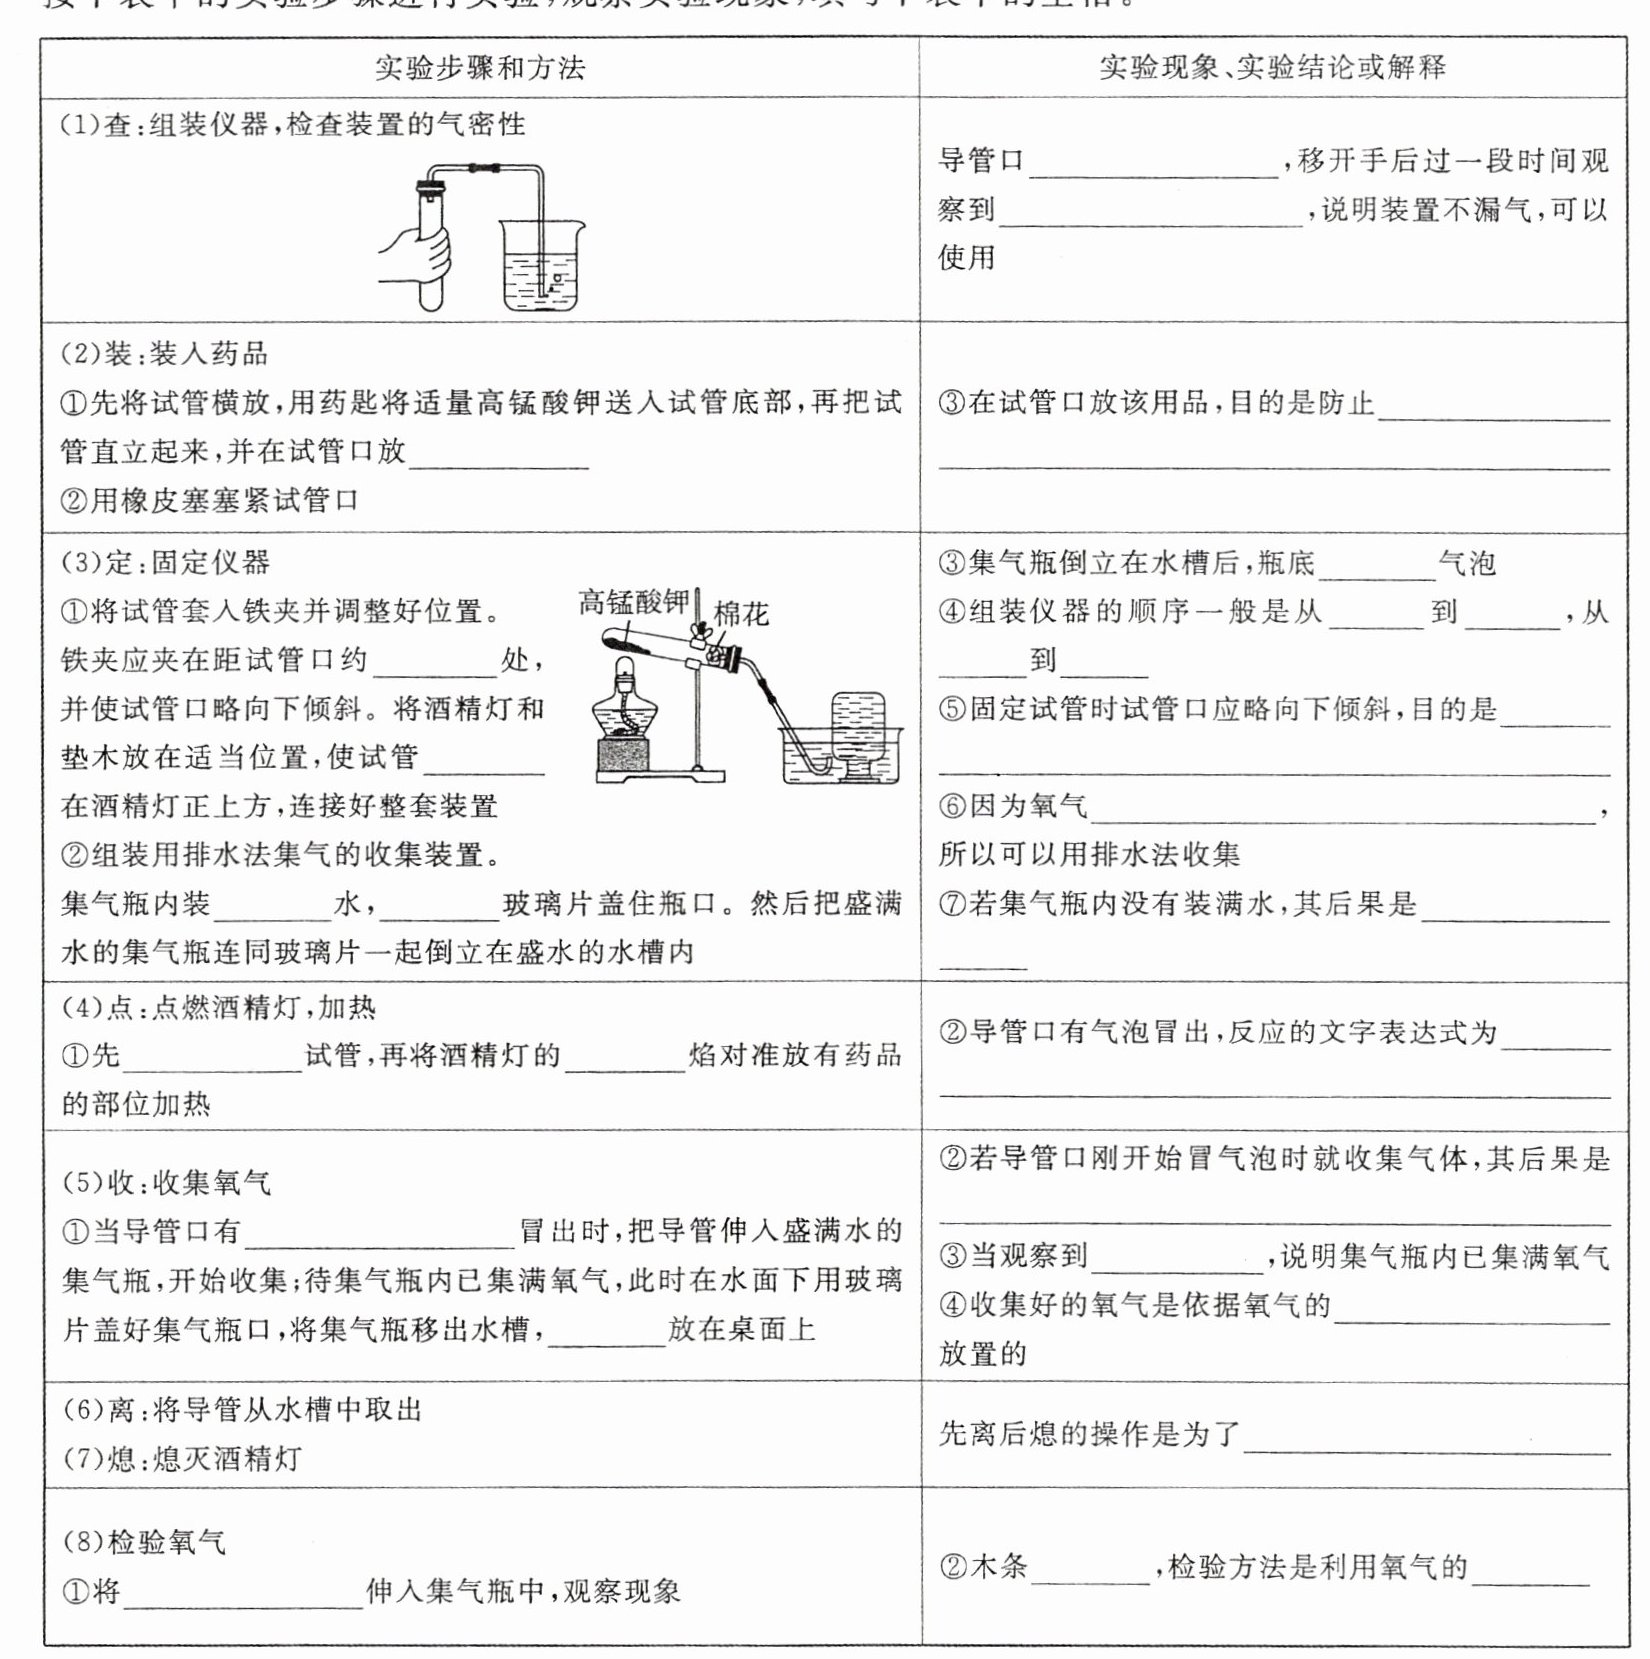 按下表中的实验步骤进行实验,观察实验现象,填写下表中的空格。
实验步骤和方法
实验现象、实验结论或解释
(1)查:组装仪器,检查装置的气密性
导管口________,移开手后过一段时间观
察到________,说明装置不漏气,可以
使用
(2)装:装入药品
①先将试管横放,用药匙将适量高锰酸钾送入试管底部,再把试
管直立起来,并在试管口放________
②用橡皮塞塞紧试管口
③在试管口放该用品,目的是防止________
________
(3)定:固定仪器
①将试管套入铁夹并调整好位置。
铁夹应夹在距试管口约________处,
并使试管口略向下倾斜。将酒精灯和
垫木放在适当位置,使试管________
在酒精灯正上方,连接好整套装置
②组装用排水法集气的收集装置。
集气瓶内装________水,________玻璃片盖住瓶口。然后把盛满
水的集气瓶连同玻璃片一起倒立在盛水的水槽内
高锰酸钾
棉花
③集气瓶倒立在水槽后,瓶底________气泡
④组装仪器的顺序一般是从________到________,从
________到________
⑤固定试管时试管口应略向下倾斜,目的是________
________
⑥因为氧气________,
所以可以用排水法收集
⑦若集气瓶内没有装满水,其后果是________
________
(4)点:点燃酒精灯,加热
①先________试管,再将酒精灯的________焰对准放有药品
的部位加热
②导管口有气泡冒出,反应的文字表达式为________
________
(5)收:收集氧气
①当导管口有________冒出时,把导管伸入盛满水的
集气瓶,开始收集;待集气瓶内已集满氧气,此时在水面下用玻璃
片盖好集气瓶口,将集气瓶移出水槽,________放在桌面上
②若导管口刚开始冒气泡时就收集气体,其后果是
________
③当观察到________,说明集气瓶内已集满氧气
④收集好的氧气是依据氧气的________
放置的
(6)离:将导管从水槽中取出
(7)熄:熄灭酒精灯
先离后熄的操作是为了________
(8)检验氧气
①将________伸入集气瓶中,观察现象
②木条________,检验方法是利用氧气的________